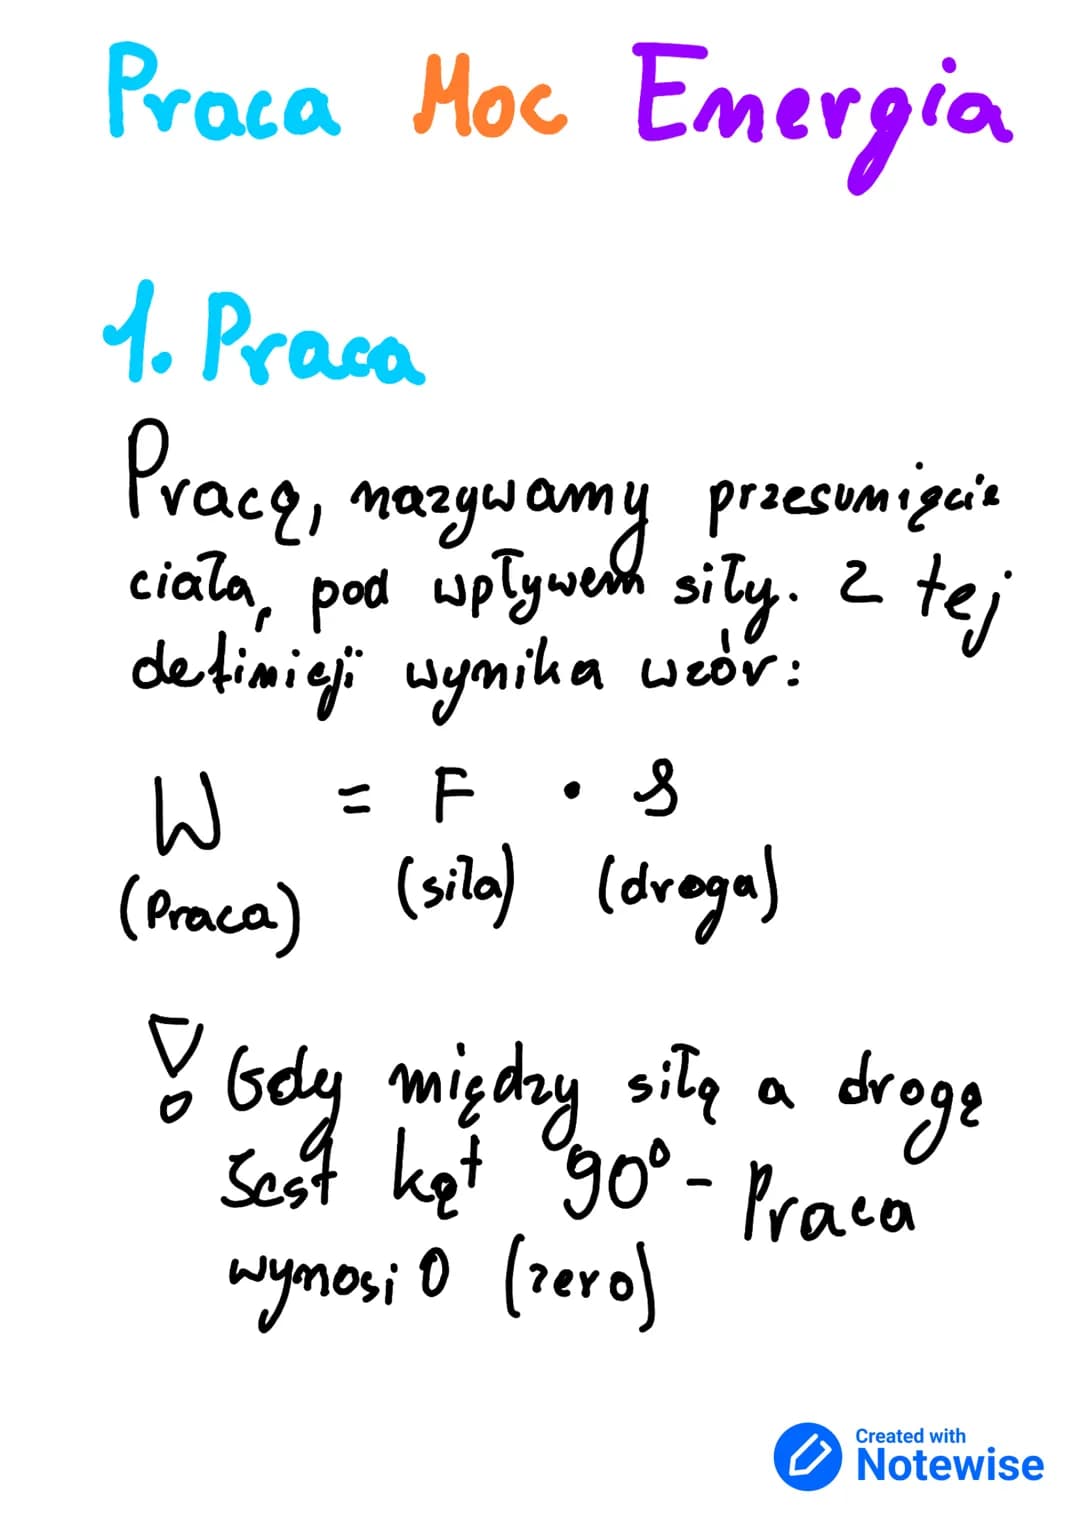 Praca Moc Energia
1. Praca
Pracą, nazywamy przesunięcie
ciała, pod wpływem siły. Z tej
definicji wynika wzór:
W = F · s
(Praca) (siła) (droga)
! Gdy między siłą a drogą
Jest kąt 90° - Praca
wynosi 0 (zero)
Created with
Notewise